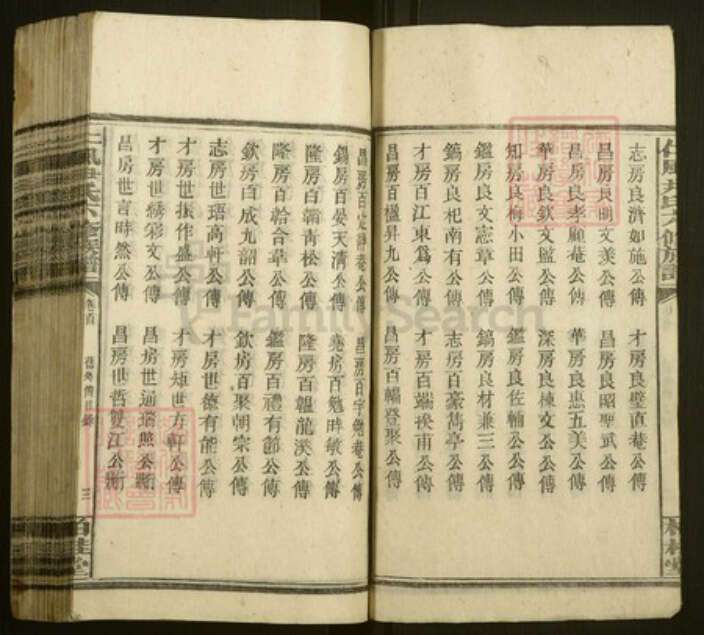 志房良濟如施公傳　才房良璧直菴公傳
昌房良明文美公傳　昌房良昭聖武公傳
昌房良孝顧菴公傳　華房良惠五美公傳
華房良欽文監公傳　深房良棟文公公傳
知房良梅小田公傳　鑑房良佐輔公公傳
鑑房良文憲章公傳　鎬房良材兼三公傳
鎬房良杞南有公傳　志房百豪雋亭公傳
才房百江東為公傳　才房百端 南公傳
昌房百楹昇九公傳　昌房百幅登聚公傳
昌房百定 菴公傳　昌房百字 菴公傳
錫房百晏天清公傳　堯房百勉時敏公傳
隆房百 青松公傳　隆房百韞龍溪公傳
隆房百 合章公傳　鑑房百禮有節公傳
欽房百成九韶公傳　欽房百聚朝宗公傳
志房世琣高軒公傳　才房世德有能公傳
才房世振作盛公傳　才房世方軒公傳
才房世繡彩文公傳　昌房世 瑞照公
昌房世言時然公傳　昌房世哲雙江公
尹氏六修族譜
卷首
三
柏桂堂
FamilySearch